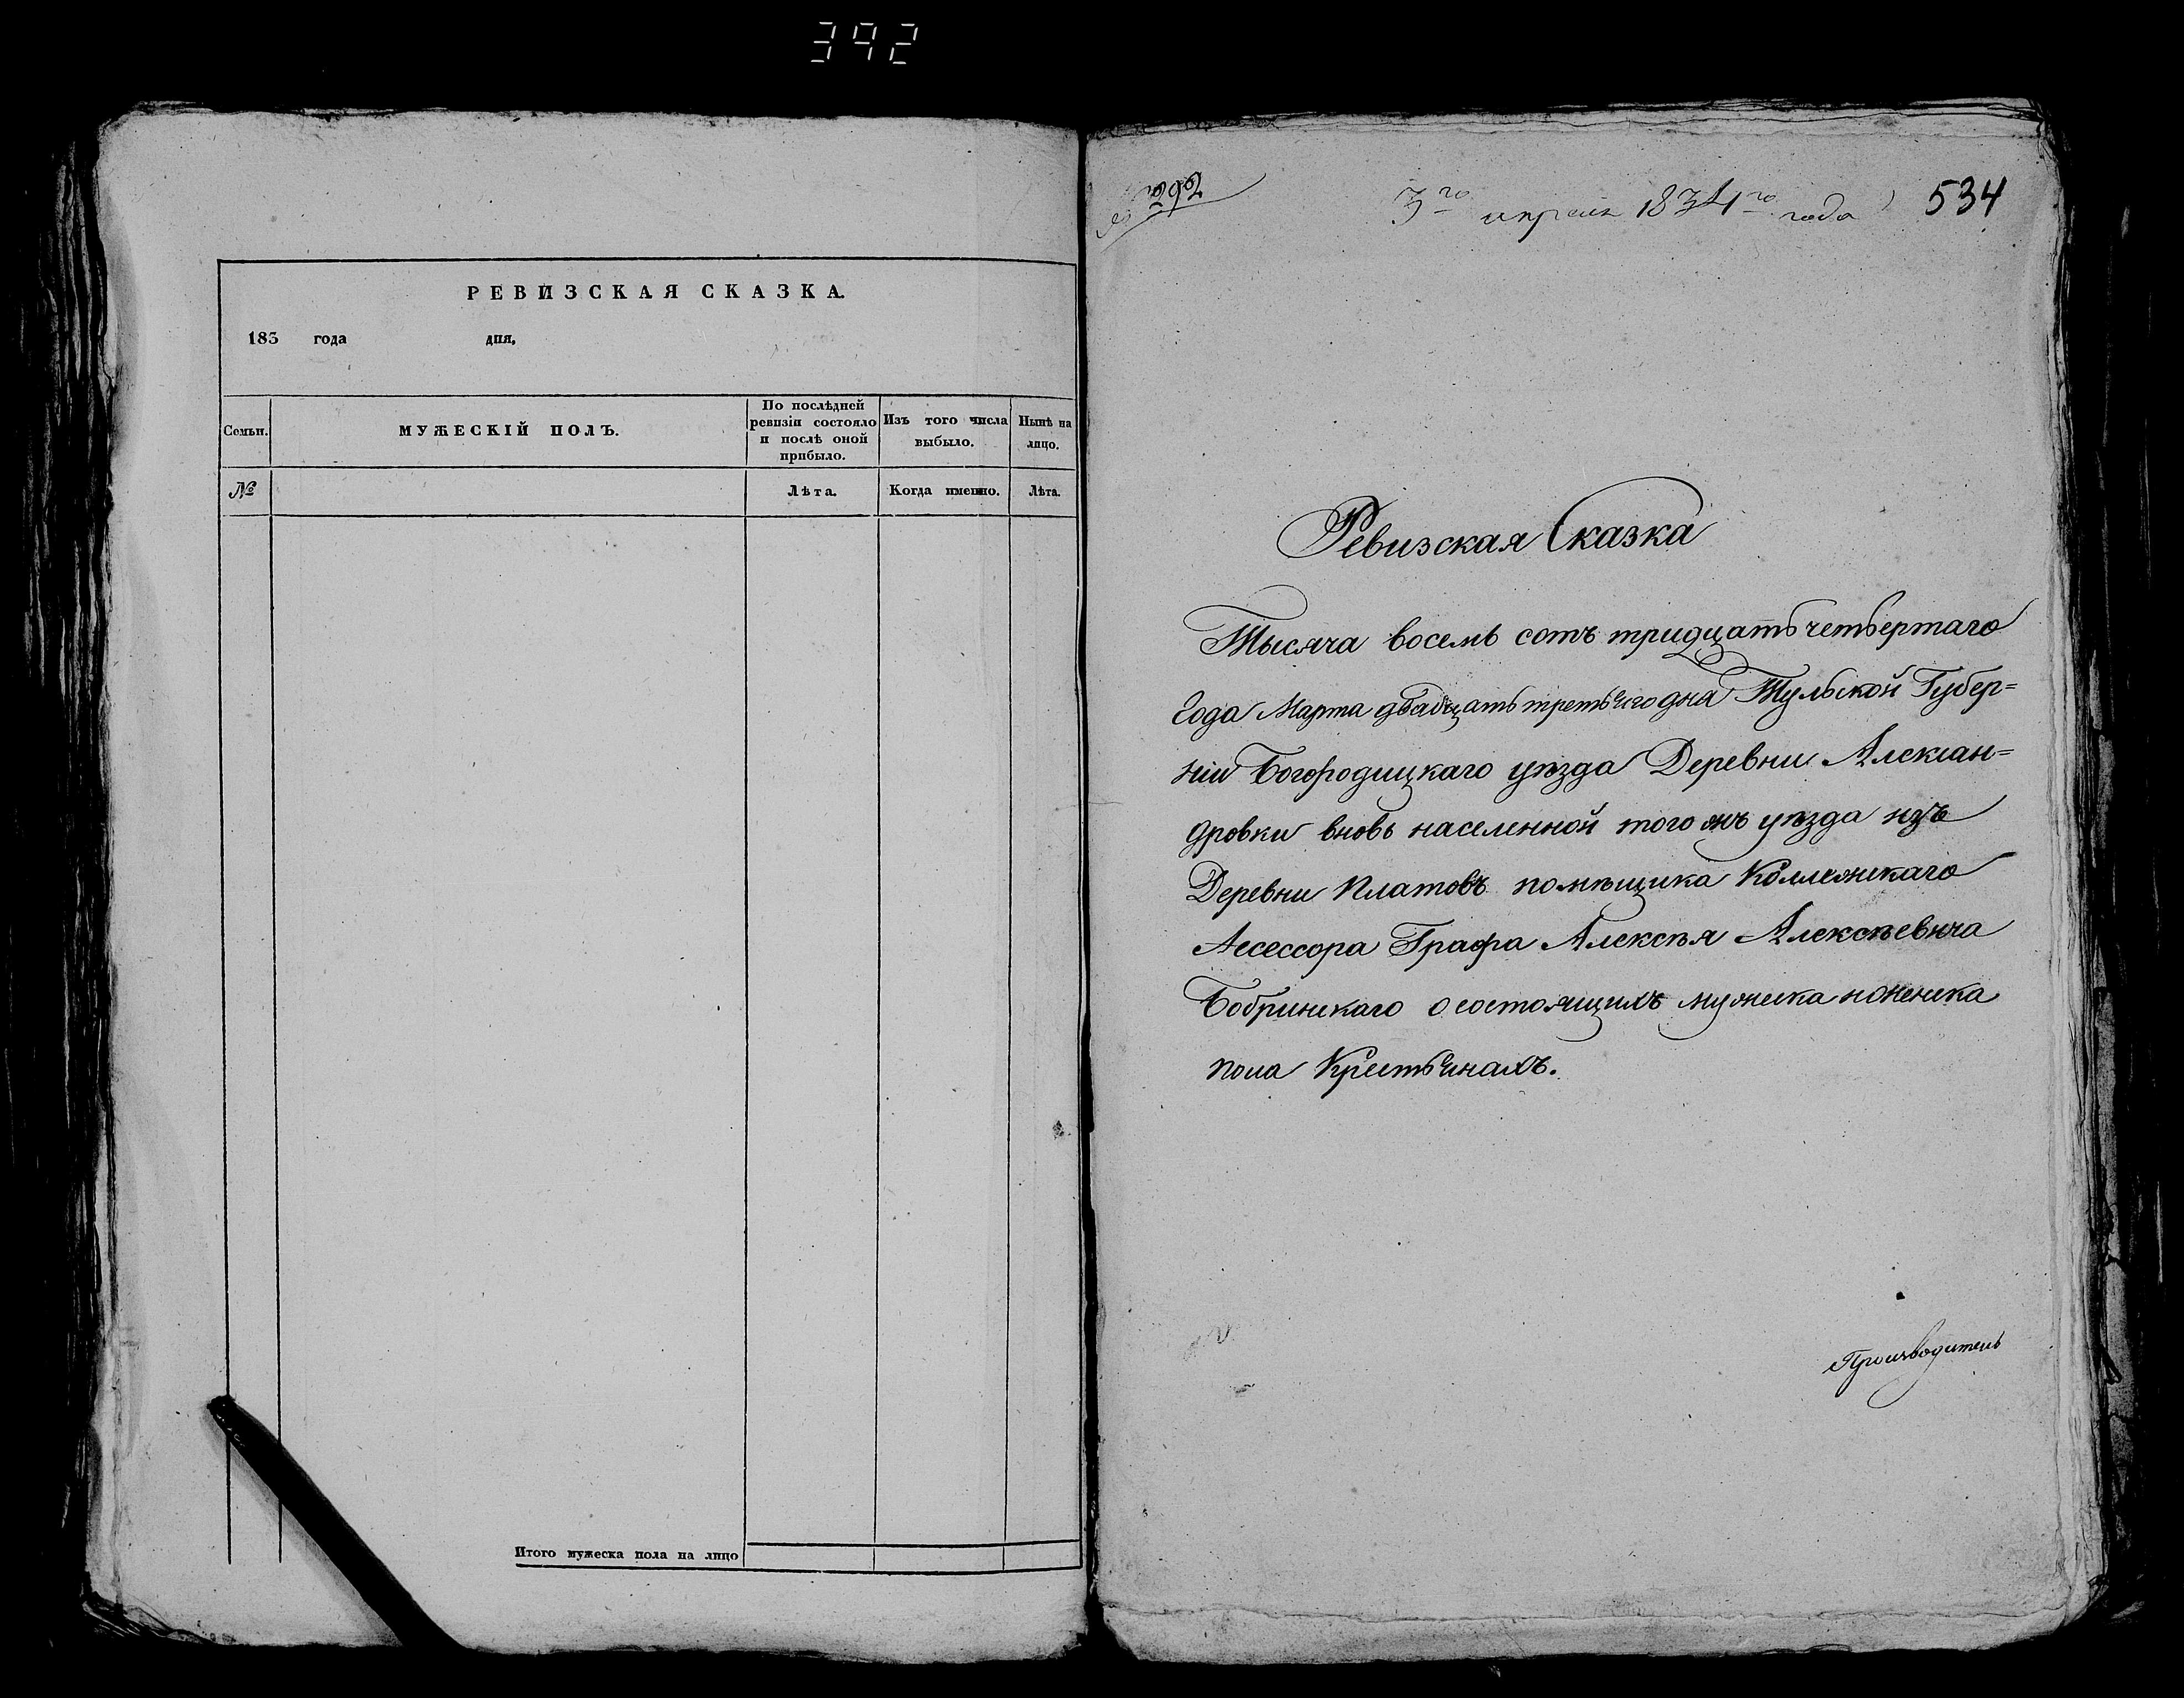 392
РЕВИЗСКАЯ СКАЗКА.
183 года дня,
Семьи.
МУЖЕСКІЙ ПОЛЪ.
По послѣдней
ревизіи состояло
и послѣ оной
прибыло.
Изъ того числа
выбыло.
Нынѣ на
лицо.
№
Лѣта.
Когда именно.
Лѣта.
Итого мужеска пола на лицо
3го апреля 1834го года
534
Ревизская Сказка
Тысяча восемь сотъ тридцать четвертаго
Года Марта двадцать третьяго дня Тульской Губер=
ніи Богородицкаго уѣзда Деревни Алексан=
дровки вновь населенной того жъ уѣзда изъ
Деревни Платовъ помѣщика Коллежскаго
Асессора Графа Алексѣя Алексѣевича
Бобринскаго о состоящихъ мужеска и женска
пола Крестьянахъ.
Производитель